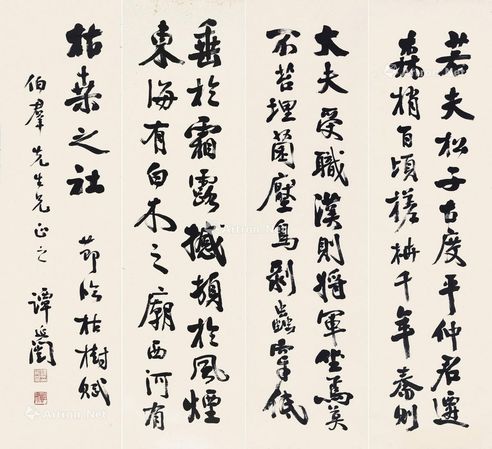 若夫松子古度平仲君遷
森梢百頃槎枿千年秦則
大夫受職漢則將軍坐焉莫
不苔埋菌壓鳥剝蟲穿低
垂於霜露撼頓於風煙
東海有白木之廟西河有
枯桑之社 節臨枯樹賦
伯羣先生兄正之 譚延闓
Artron.Net